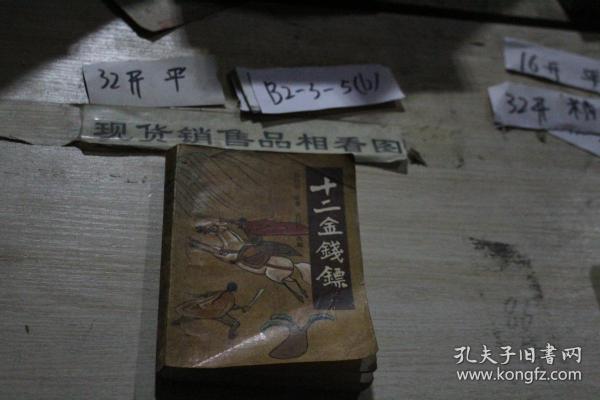 32开 平
B2-3-5(b)
16开 平
32开 精
现货銷售品相看图
十二金錢鏢
孔夫子旧書网
www.kongfz.com